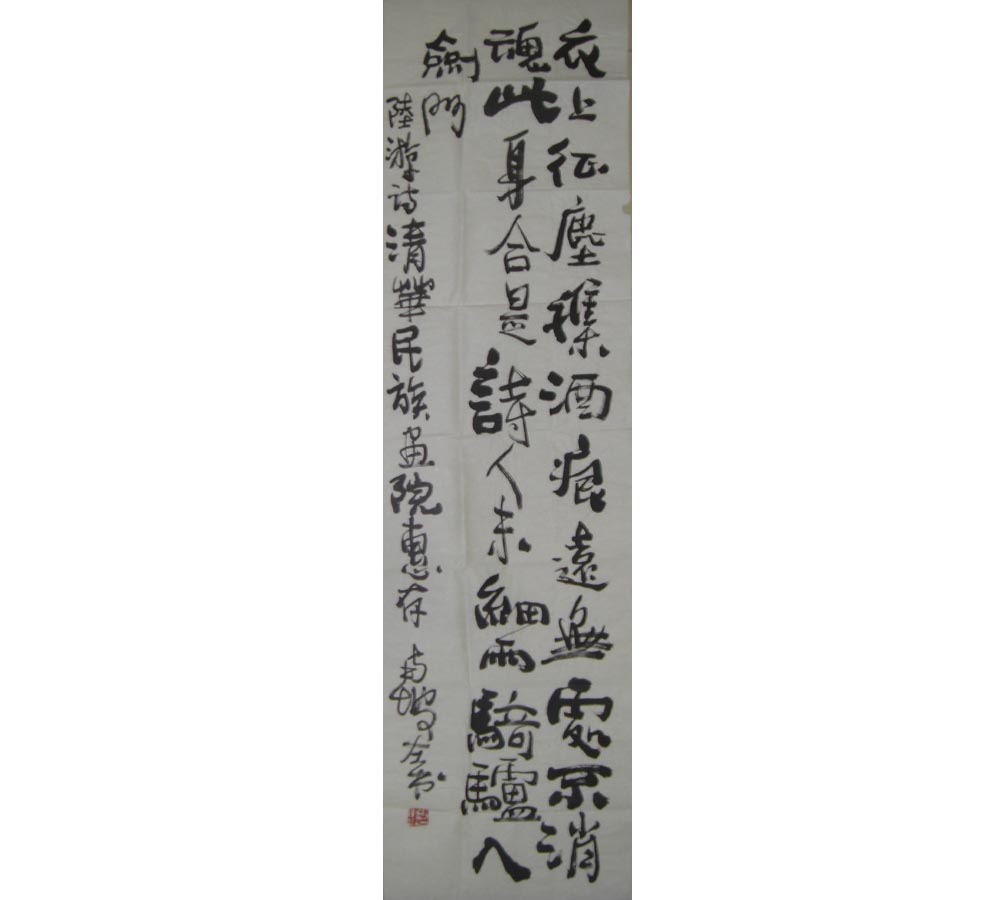 衣上征塵襍酒痕遠無處不消
魂此身合是詩人未細雨騎驢入
劍門
陸游诗清華民族画院惠存 左书